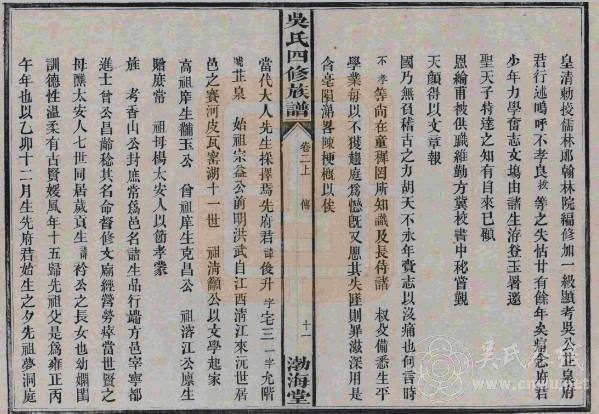 皇清勅授儒林郎翰林院編修加一級顯考吳公芷泉府
君行述嗚呼不孝良披等之失怙廿有餘年矣痛念府君
少年力學奮志文場由諸生洊登玉署邀
聖天子特達之知有自來已領
恩綸甫被供職維勤方冀校書中秘嘗覲
天顏得以文章報
國乃無負稽古之力胡天不永年賫志以沒痛也何言時
不孝等尚在童穉罔所知識及長侍諸 叔父備悉生平
學業每以不獲趨庭為憾旣又思其失墜則罪滋深用是
含毫隕涕畧陳梗槪以俟
吳氏四修族譜
卷二上
傳
十一
渤海堂
當代大人先生採擇焉先府君諱俊升字宅三一字允階
號芷泉 始祖宗益公前明洪武自江西淸江來沅世居
邑之賽河皮瓦窰湖十一世 祖淸顯公以文學起家
高祖庠生髗玉公 曾祖庠生克昌公 祖溶江公廩生
贈庶常 祖母楊太安人以節孝蒙
旌 考香山公封庶常為邑名諸生品行端方邑宰寧都
進士曾公昌齡稔其名命督修文廟經營勞瘁當世賢之
母醮太安人七世同居歲貢生諱衿公之長女也幼嫻閨
訓德性溫柔有古賢媛風年十五歸先祖父是為雍正丙
午年也以乙卯十二月生先府君始生之夕先祖夢洞庭
吳氏在線
www.cnwu.net